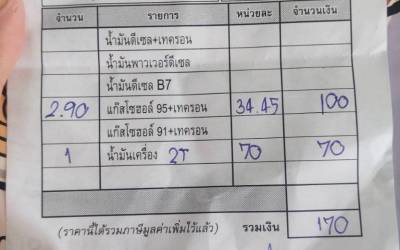 จำนวน รายการ หน่วยละ จำนวนเงิน
น้ำมันดีเซล+เทครอน
น้ำมันพาวเวอร์ดีเซล
น้ำมันดีเซล B7
2.90 แก๊สโซฮอล์ 95+เทครอน 34.45 100
แก๊สโซฮอล์ 91+เทครอน
1 น้ำมันเครื่อง 2T 70 70
(ราคานี้ได้รวมภาษีมูลค่าเพิ่มไว้แล้ว) รวมเงิน 170